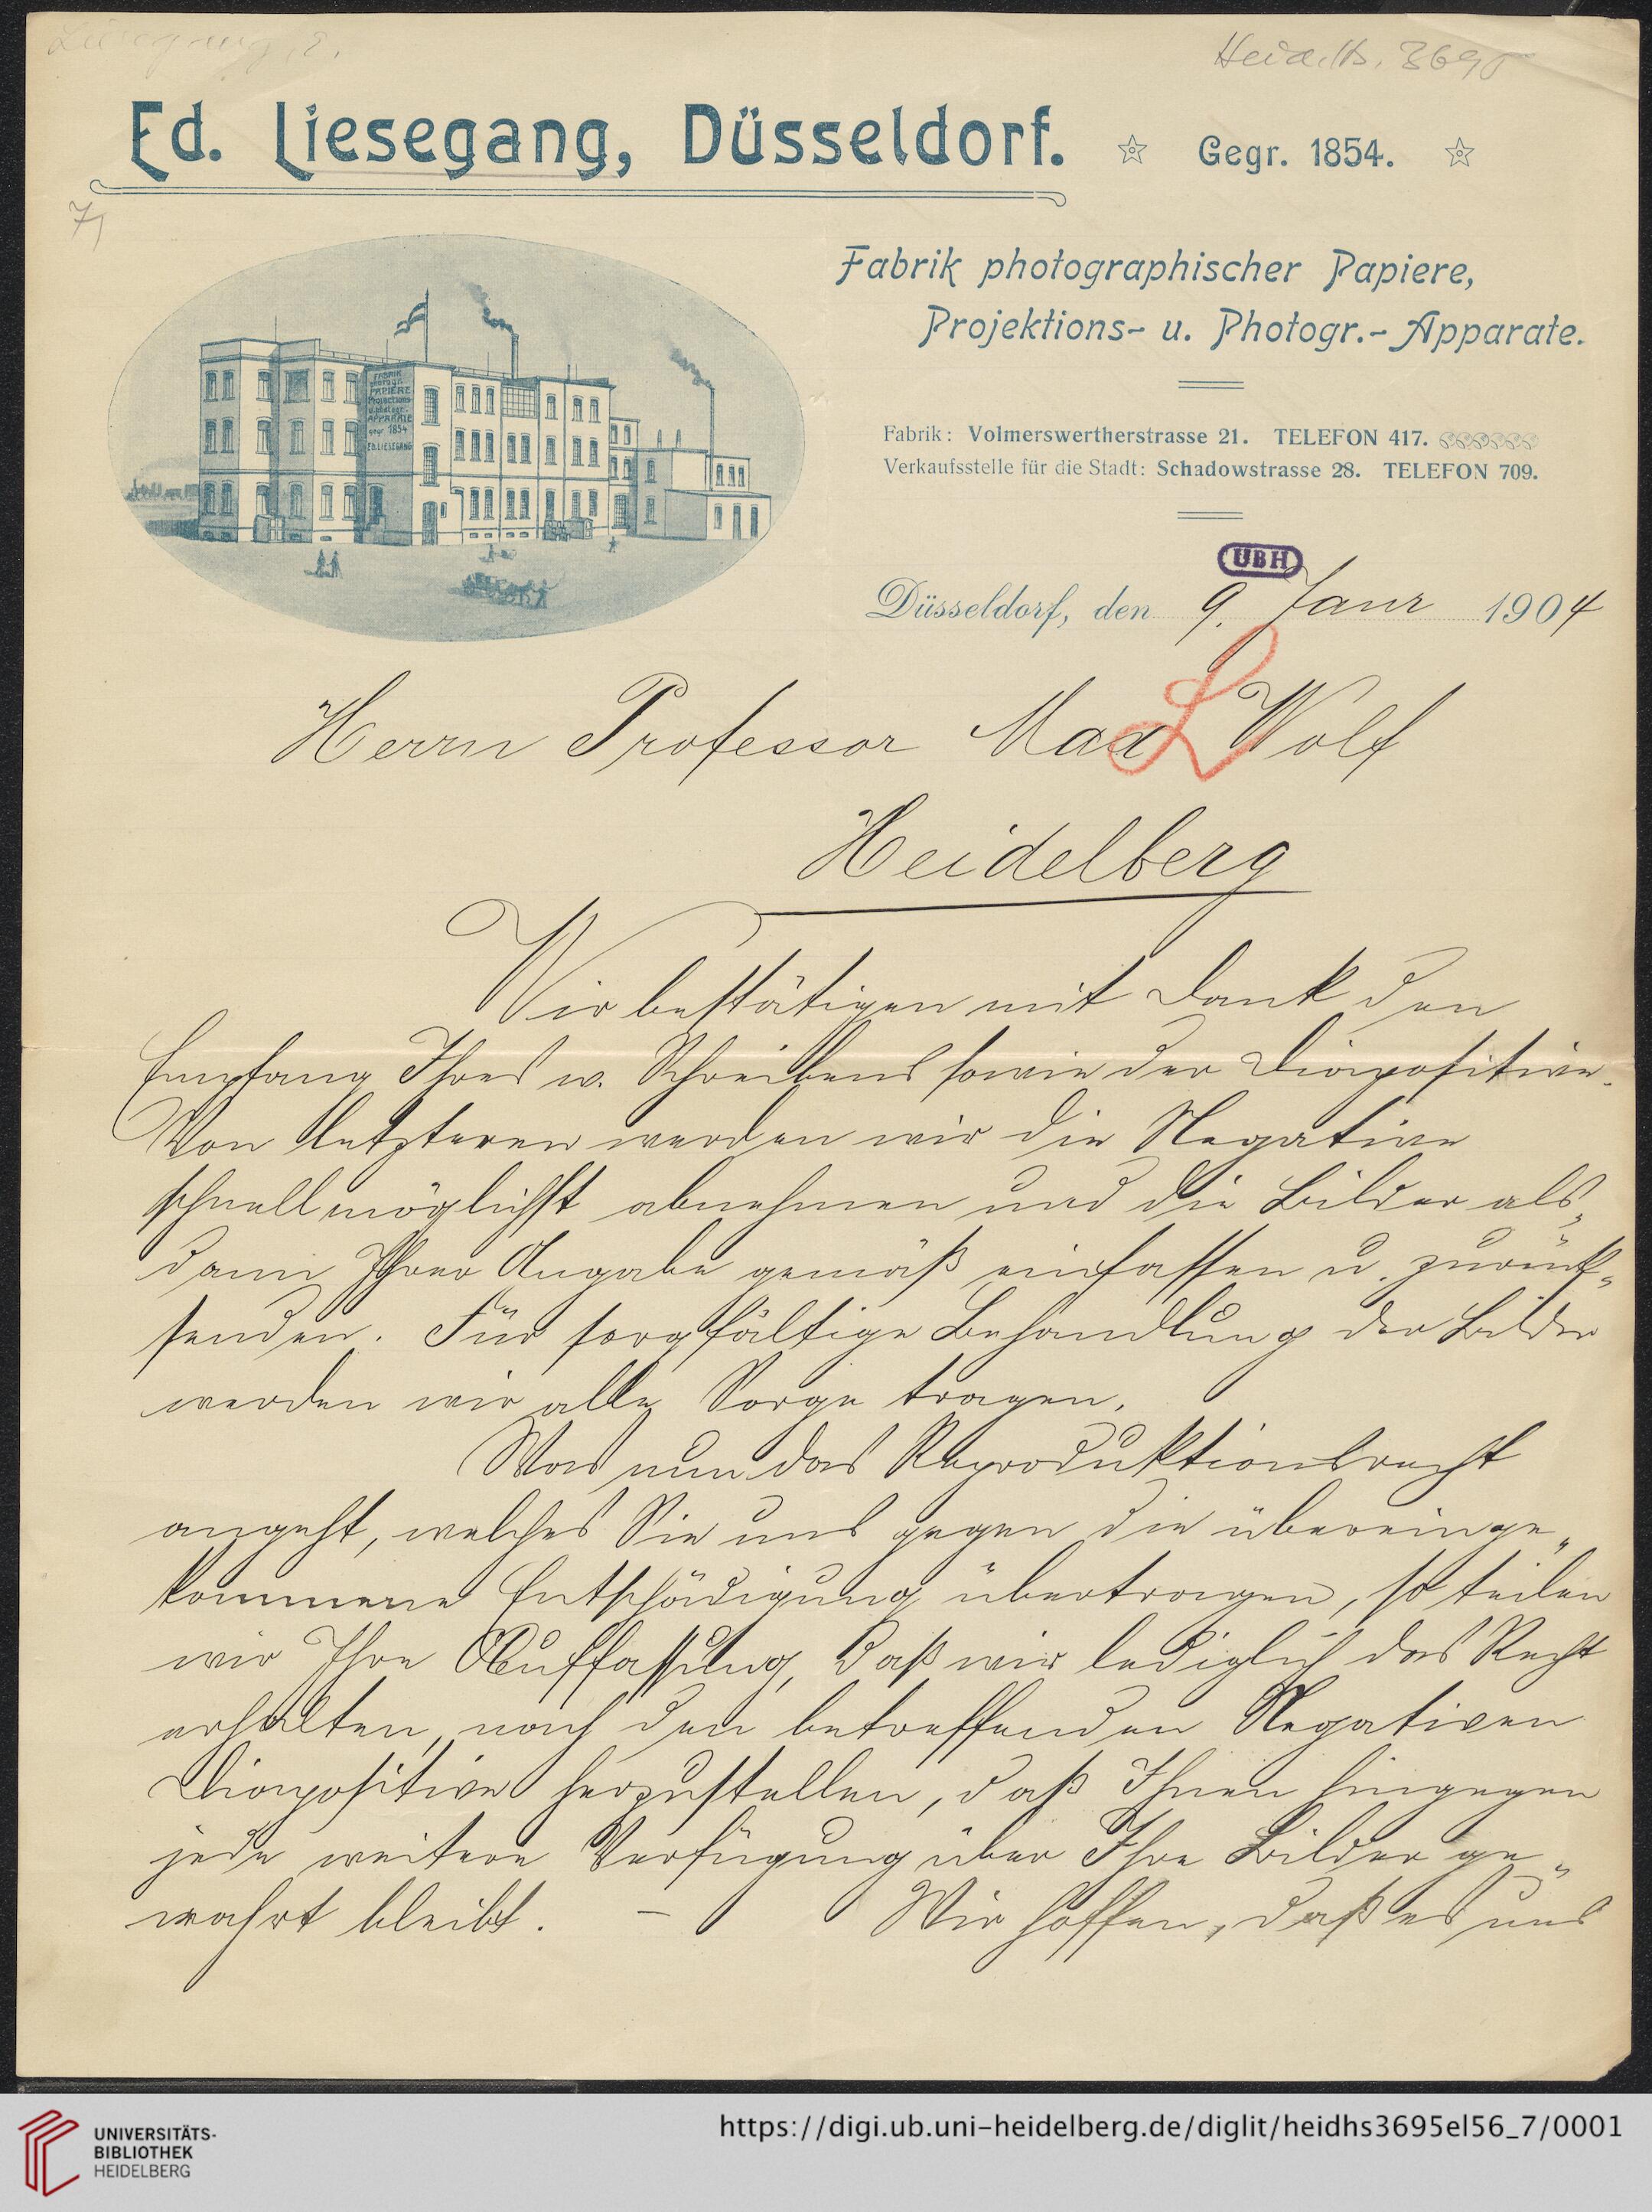 Liesegang, E.
Heid. Hs. 3695
Ed. Liesegang, Düsseldorf. Gegr. 1854.
7)
Fabrik photographischer Papiere,
Projektions- u. Photogr.-Apparate.
FABRIK
photogr.
PAPIERE
Projections-
u. photogr.
APPARATE
gegr. 1854
ED. LIESEGANG
Fabrik: Volmerswertherstrasse 21. TELEFON 417.
Verkaufsstelle für die Stadt: Schadowstrasse 28. TELEFON 709.
UBH
Düsseldorf, den 9. Janr 1904
L
Herrn Professor Max Wolf
Heidelberg
Wir bestätigen mit Dank den
Empfang Ihres w. Schreibens sowie der Diapositive.
Von letzteren werden wir die Negative
schnellmöglichst abnehmen und die Bilder als-
dann Ihrer Angabe gemäß einfassen u. zurück-
senden. Für sorgfältige Behandlung der Bilder
werden wir alle Sorge tragen.
Was nun das Reproduktionsrecht
angeht, welches Sie uns gegen die übereinge-
kommene Entschädigung übertragen, so teilen
wir Ihre Auffassung, daß wir lediglich das Recht
erhalten, nach den betreffenden Negativen
Diapositive herzustellen, daß Ihnen hingegen
jede weitere Verfügung über Ihre Bilder ge-
wahrt bleibt. – Wir hoffen, daß es uns
UNIVERSITÄTS-
BIBLIOTHEK
HEIDELBERG
https://digi.ub.uni-heidelberg.de/diglit/heidhs3695el56_7/0001